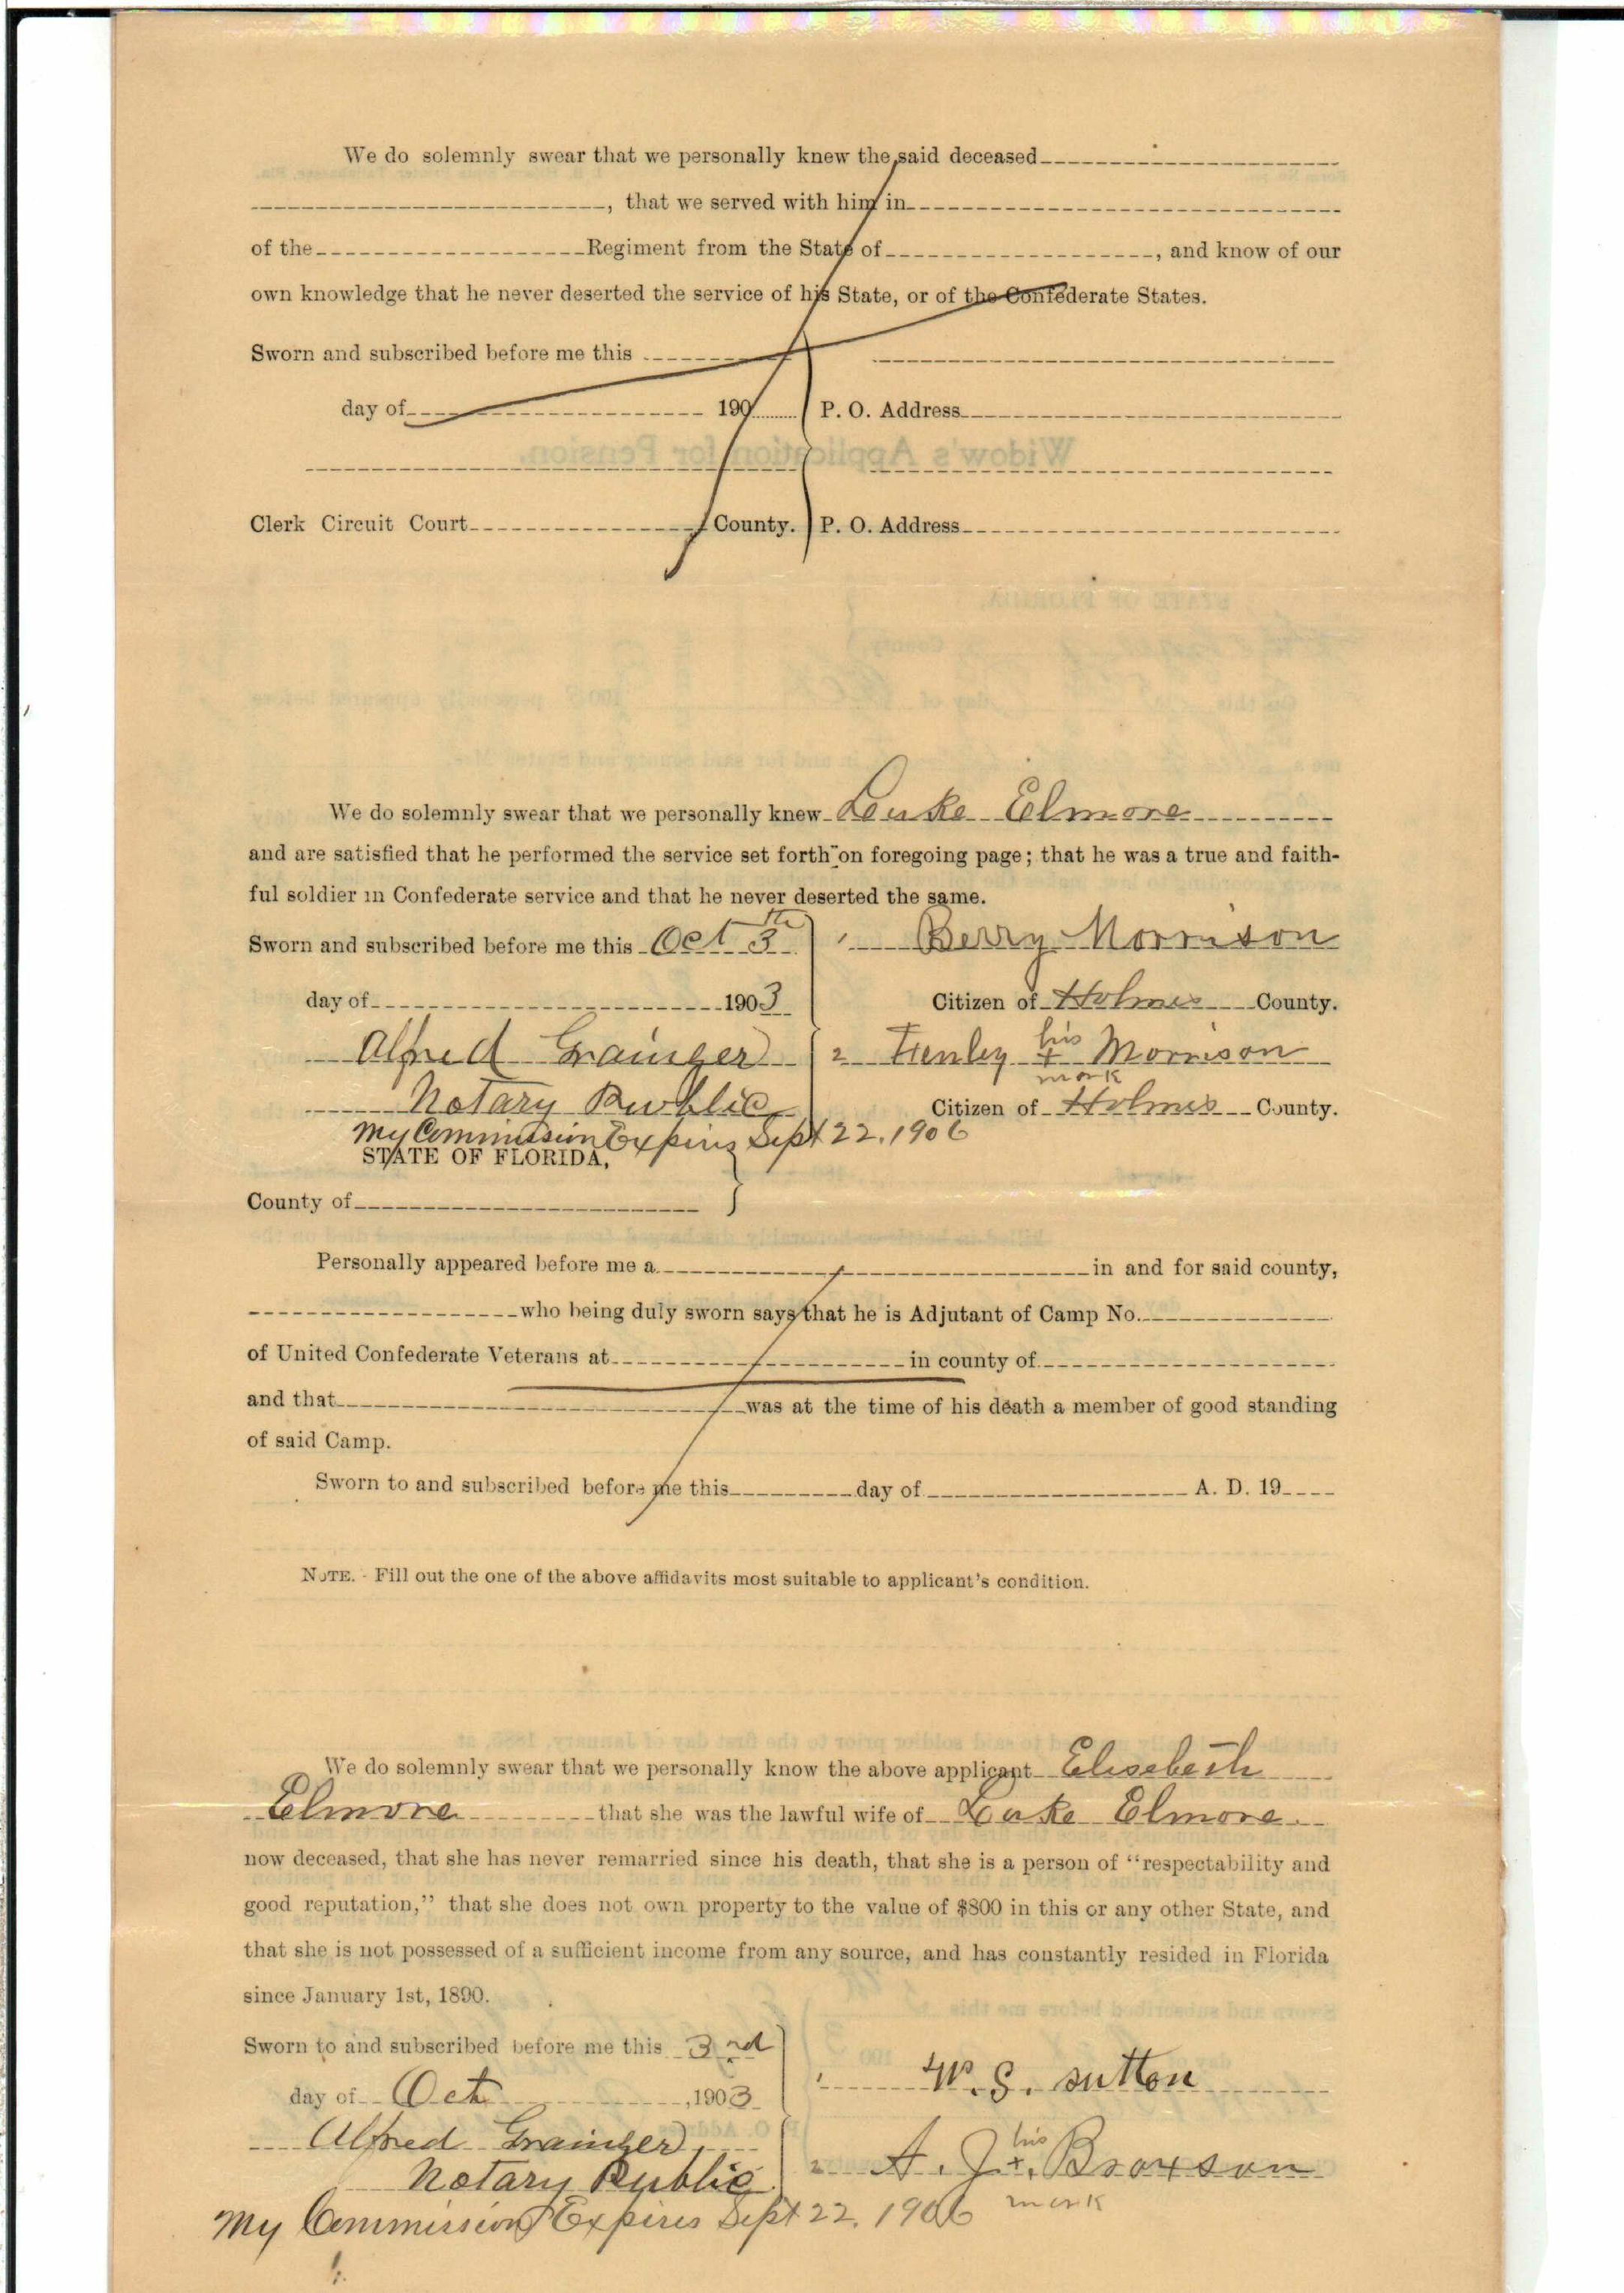 We do solemnly swear that we personally knew the said deceased
, that we served with him in
of the Regiment from the State of , and know of our
own knowledge that he never deserted the service of his State, or of the Confederate States.
Sworn and subscribed before me this
day of 190 P. O. Address
Widow's Application for Pension.
Clerk Circuit Court County. P. O. Address
STATE OF FLORIDA,
We do solemnly swear that we personally knew Leuke Elmore
and are satisfied that he performed the service set forth on foregoing page; that he was a true and faith-
ful soldier in Confederate service and that he never deserted the same.
Sworn and subscribed before me this Oct 3th 1 Berry Morrison
day of 1903 Citizen of Holmes County.
Alfred Grainger 2 Henley his + mark Morrison
Notary Public Citizen of Holmes County.
My Commission Expires Sept 22. 1906
STATE OF FLORIDA,
County of
Personally appeared before me a in and for said county,
who being duly sworn says that he is Adjutant of Camp No.
of United Confederate Veterans at in county of
and that was at the time of his death a member of good standing
of said Camp.
Sworn to and subscribed before me this day of A. D. 19
NOTE. - Fill out the one of the above affidavits most suitable to applicant's condition.
We do solemnly swear that we personally know the above applicant Elisebeth
Elmore that she was the lawful wife of Leuke Elmore.
now deceased, that she has never remarried since his death, that she is a person of "respectability and
good reputation," that she does not own property to the value of $800 in this or any other State, and
that she is not possessed of a sufficient income from any source, and has constantly resided in Florida
since January 1st, 1890.
Sworn to and subscribed before me this 3rd
day of Oct , 1903 1 W. S. Sutton
Alfred Grainger
Notary Public 2 A. J. his + mark Broxson
My Commission Expires Sept 22. 1906